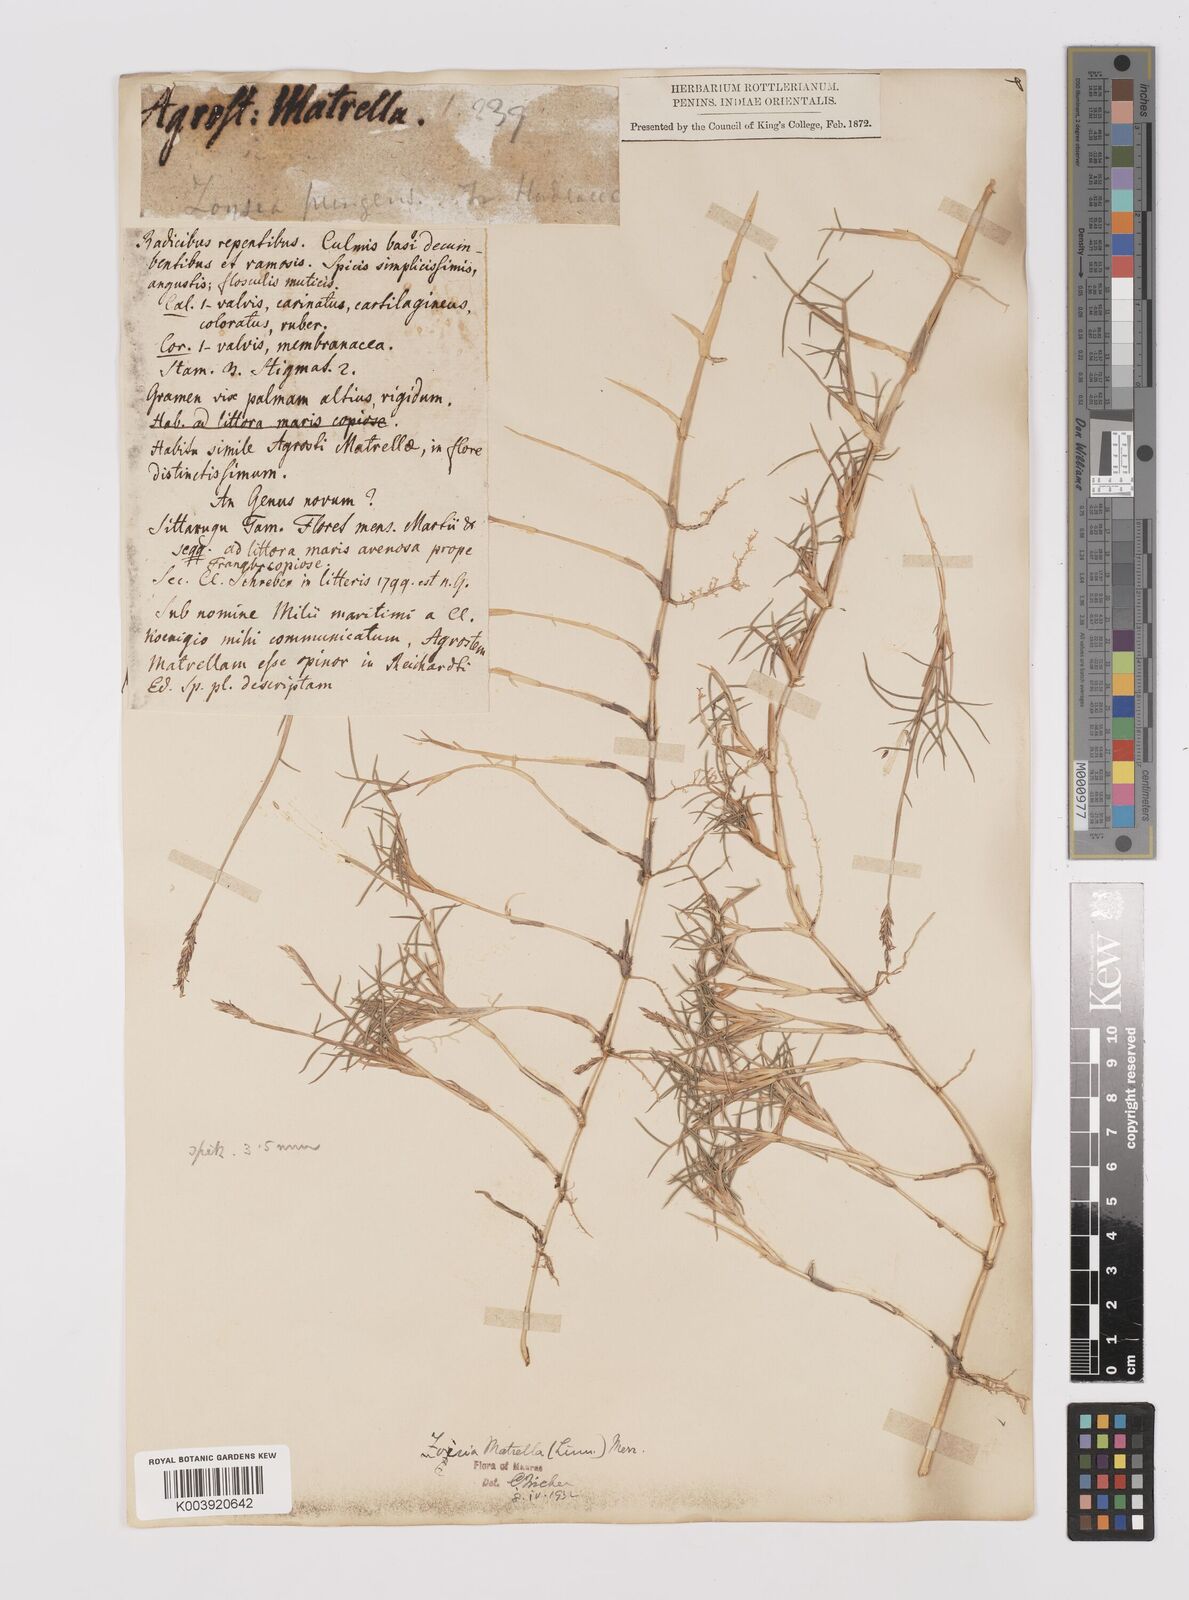 Agrost: Matrella. 239
Zoysia pungens.
HERBARIUM ROTTLERIANUM.
PENINS. INDIAE ORIENTALIS.
Presented by the Council of King's College, Feb. 1872.
Radicibus repentibus. Culmis basi decum-
bentibus et ramosis. Spicis simplicissimis,
angustis; flosculis muticis.
Cal. 1-valvis, carinatus, cartilagineus,
coloratus, ruber.
Cor. 1-valvis, membranacea.
Stam. 3. Stigmat. 2.
Gramen vix palmam altius, rigidum.
Hab. ad littora maris copiose.
Habitu simile Agrosti Matrellæ, in flore
distinctissimum.
An Genus novum?
Sittarugu Tam. Floret mens. Martii &
seqq. ad littora maris arenosa prope
Trangb. copiose.
Sec. Cl. Schreber in litteris 1799. est n. G.
Sub nomine Milii maritimi a Cl.
Koenigio mihi communicatum, Agrostem
Matrellam esse opinor in Reichardti
Ed. Sp. pl. descriptam
spik. 3.5 mm
Zoisia Matrella (Linn.) Merr.
Flora of Madras
Det. C. Fischer
8.iv.1932
ROYAL BOTANIC GARDENS KEW
K003920642
inches
centimeters
Density
Don Williams
M000977
Kew
copyright reserved
0 1 2 3 4 5 6 7 8 9 10
cm